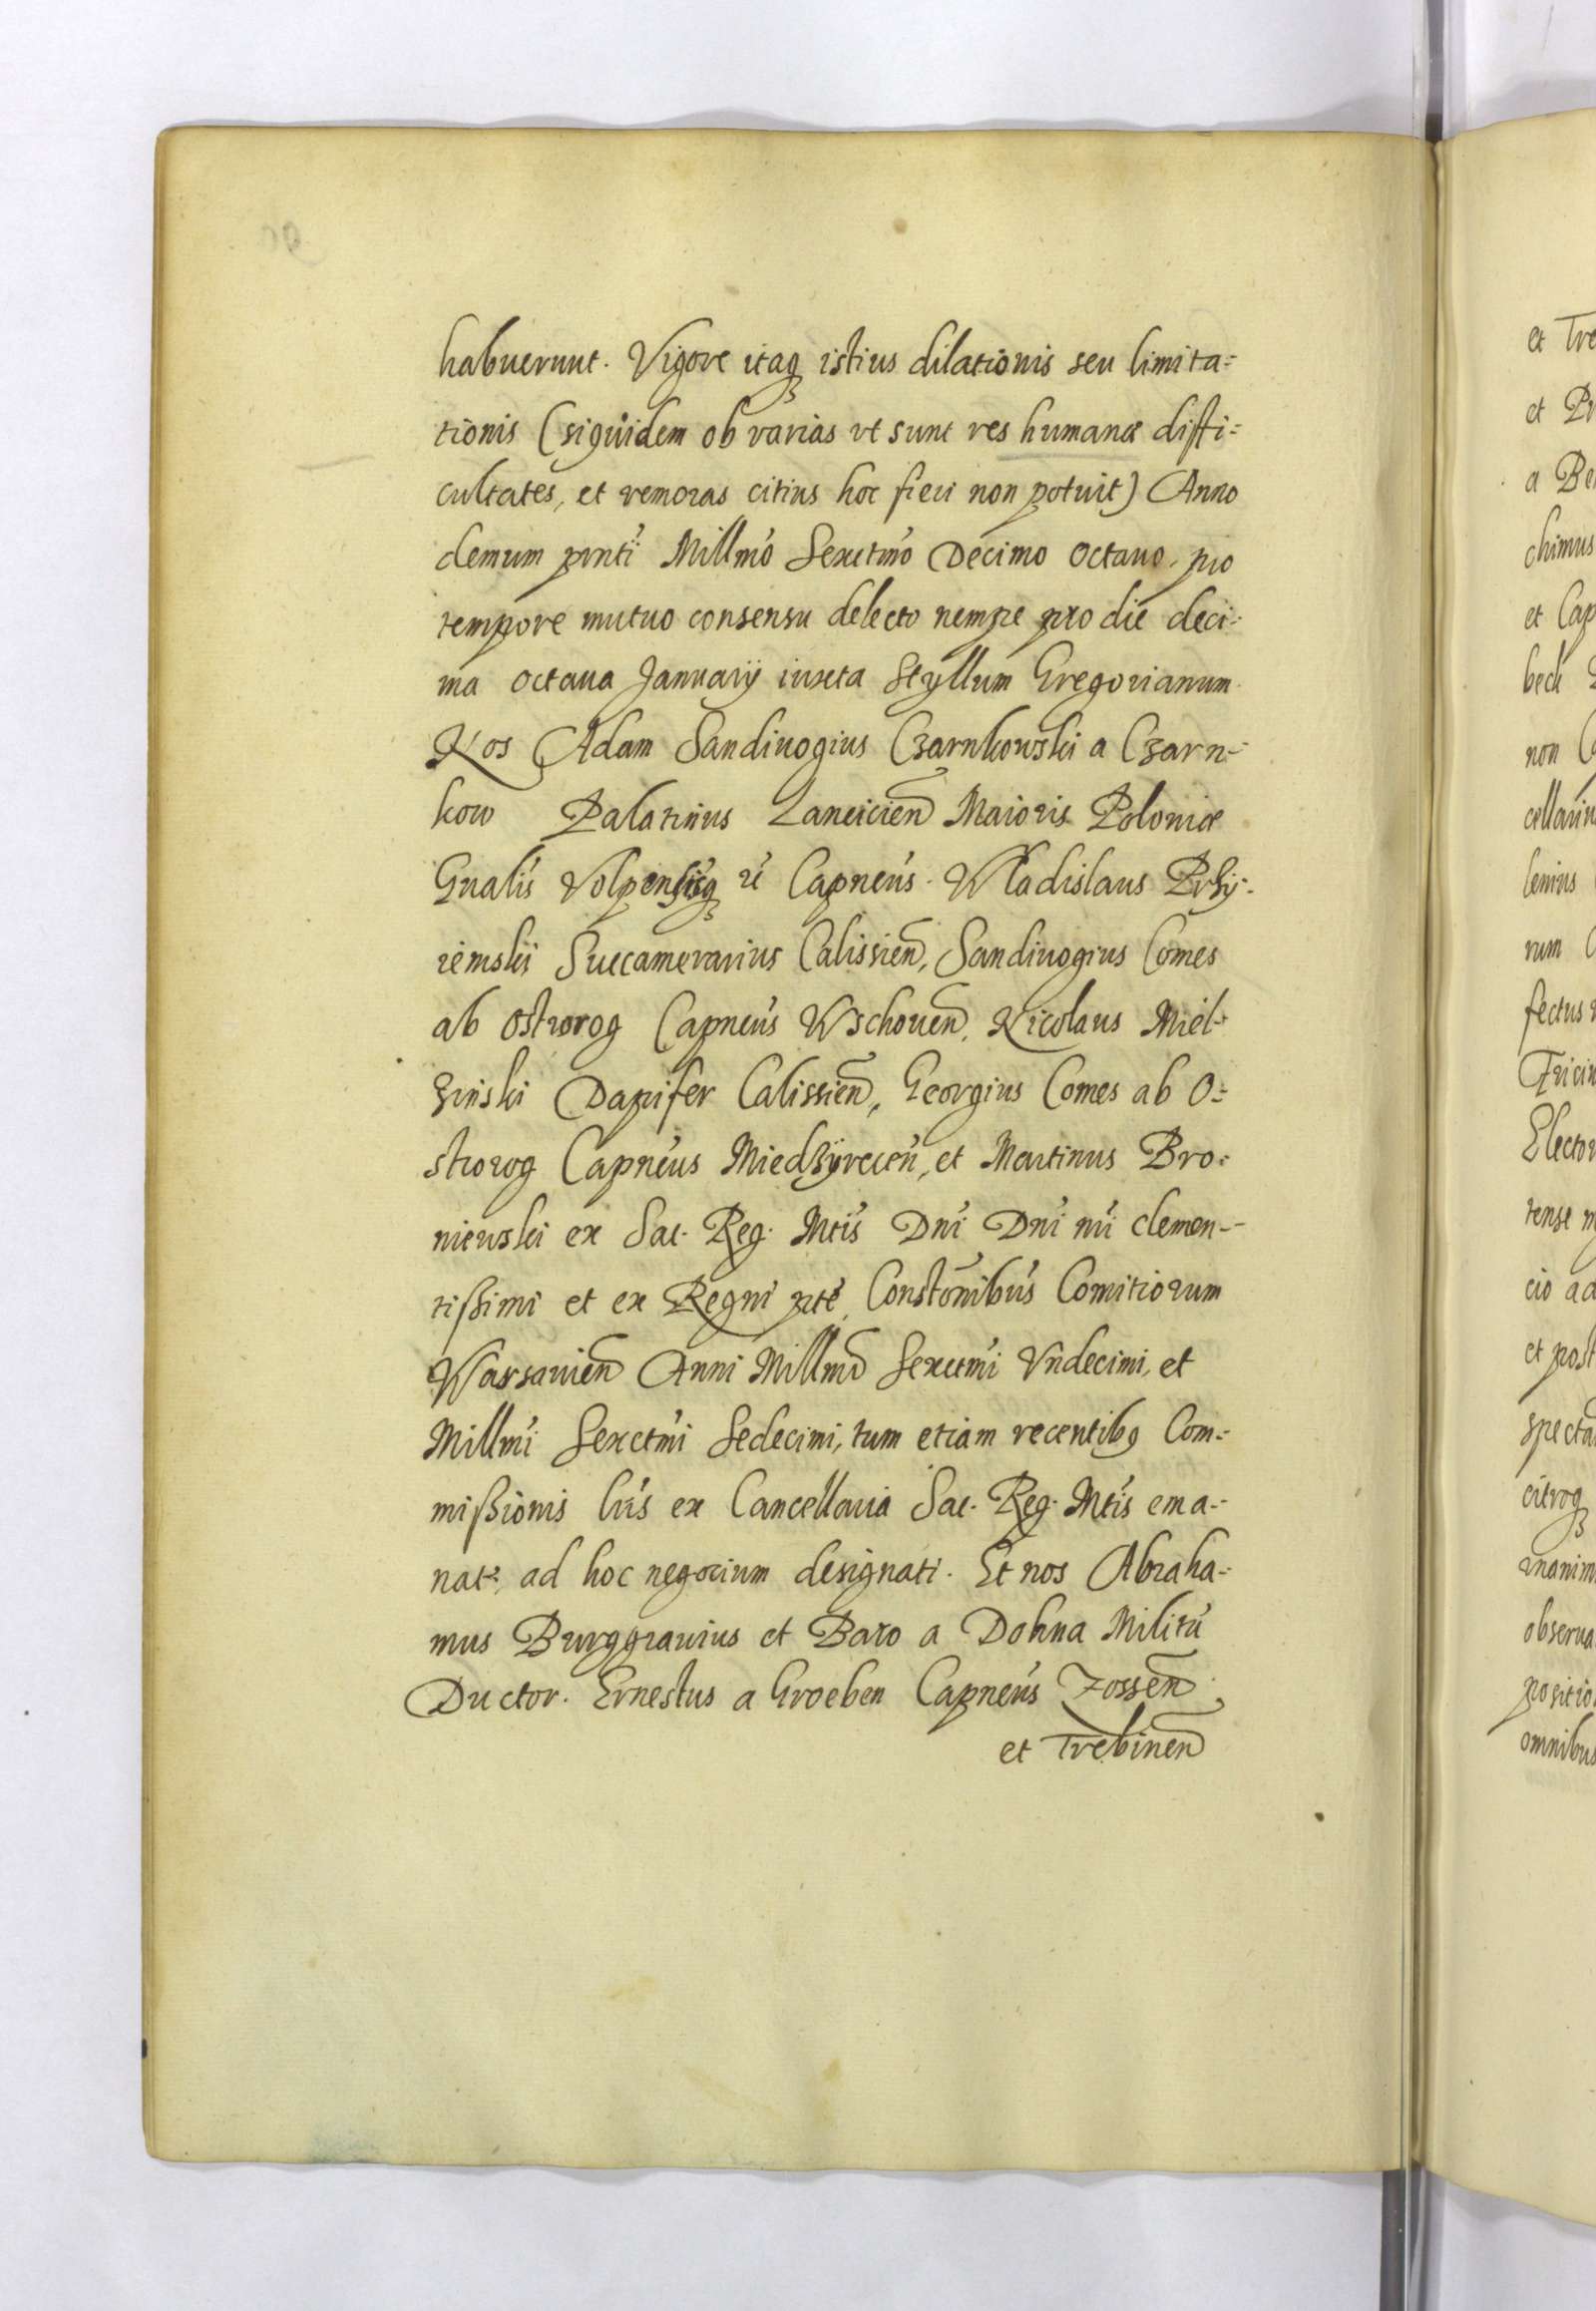 habuerunt. Vigore itaq istius dilationis seu limita=
tionis (siquidem ob varias vt sunt res humanæ diffi=
cultates, et remoras citius hoc fieri non potuit) Anno
demum pnti Millmo Sexctmo Decimo Octauo, pro
tempore mutuo consensu delecto nempe pro die deci=
ma octaua Januarij iuxta Styllum Gregorianum.
Nos Adam Sandiuogius Czarnkowski a Czarn=
kow Palatinus Lancicien Maioris Poloniæ
Gnalis Volpensisq Capneus. Wladislaus Przy=
iemski Succamerarius Calissien, Sandiuogius Comes
ab Ostrorog Capneus Wschouen, Nicolaus Miel=
zinski Dapifer Calissien, Georgius Comes ab O=
strorog Capneus Miedzyrecen, et Martinus Bro=
niewski ex Sac. Reg. Mtis Dni Dni nri clemen=
tißimi et ex Regni pte, Constonibus Comitiorum
Warsauien Anni Millmo Sexctmi Vndecimi, et
Millmi Sexctmi Sedecimi, tum etiam recentibq Com=
mißionis lris ex Cancellaria Sac. Reg. Mtis ema=
nat, ad hoc negocium designati. Et nos Abraha=
mus Burggrauius et Baro a Dohna Militu
Ductor. Ernestus a Groeben Capneus Zossen
et Trebinen
et Tre
et
a
chimus
et Cap
beck
non
cellariu
lenius
rum
fectus
Elector
tense
cio ad
et post
specta
citroq
vnanim
obserua
positio
omnibus